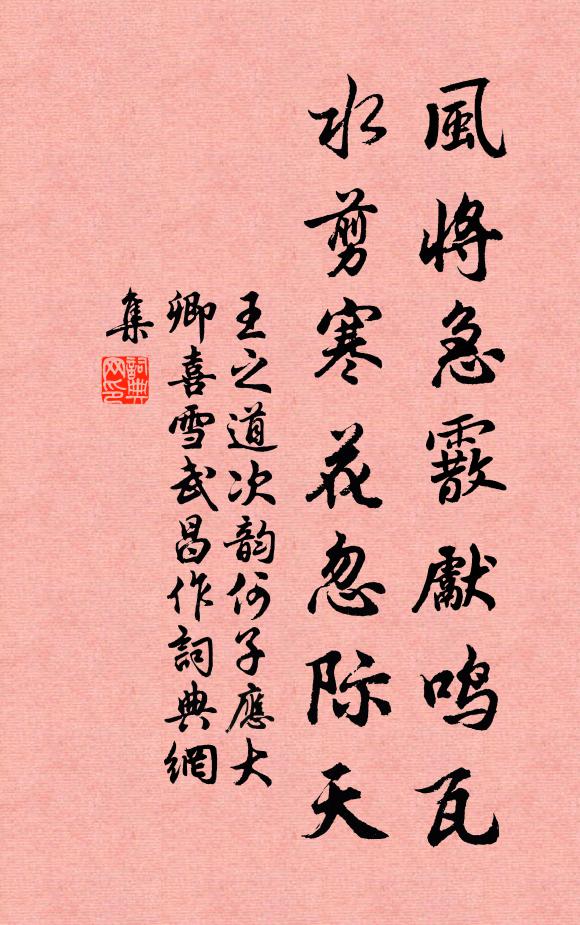 風將急霰獻鳴瓦
水剪寒花忽际天
王之道次韵何子應大
卿喜雪武昌作詞典網
集
詞典
网印